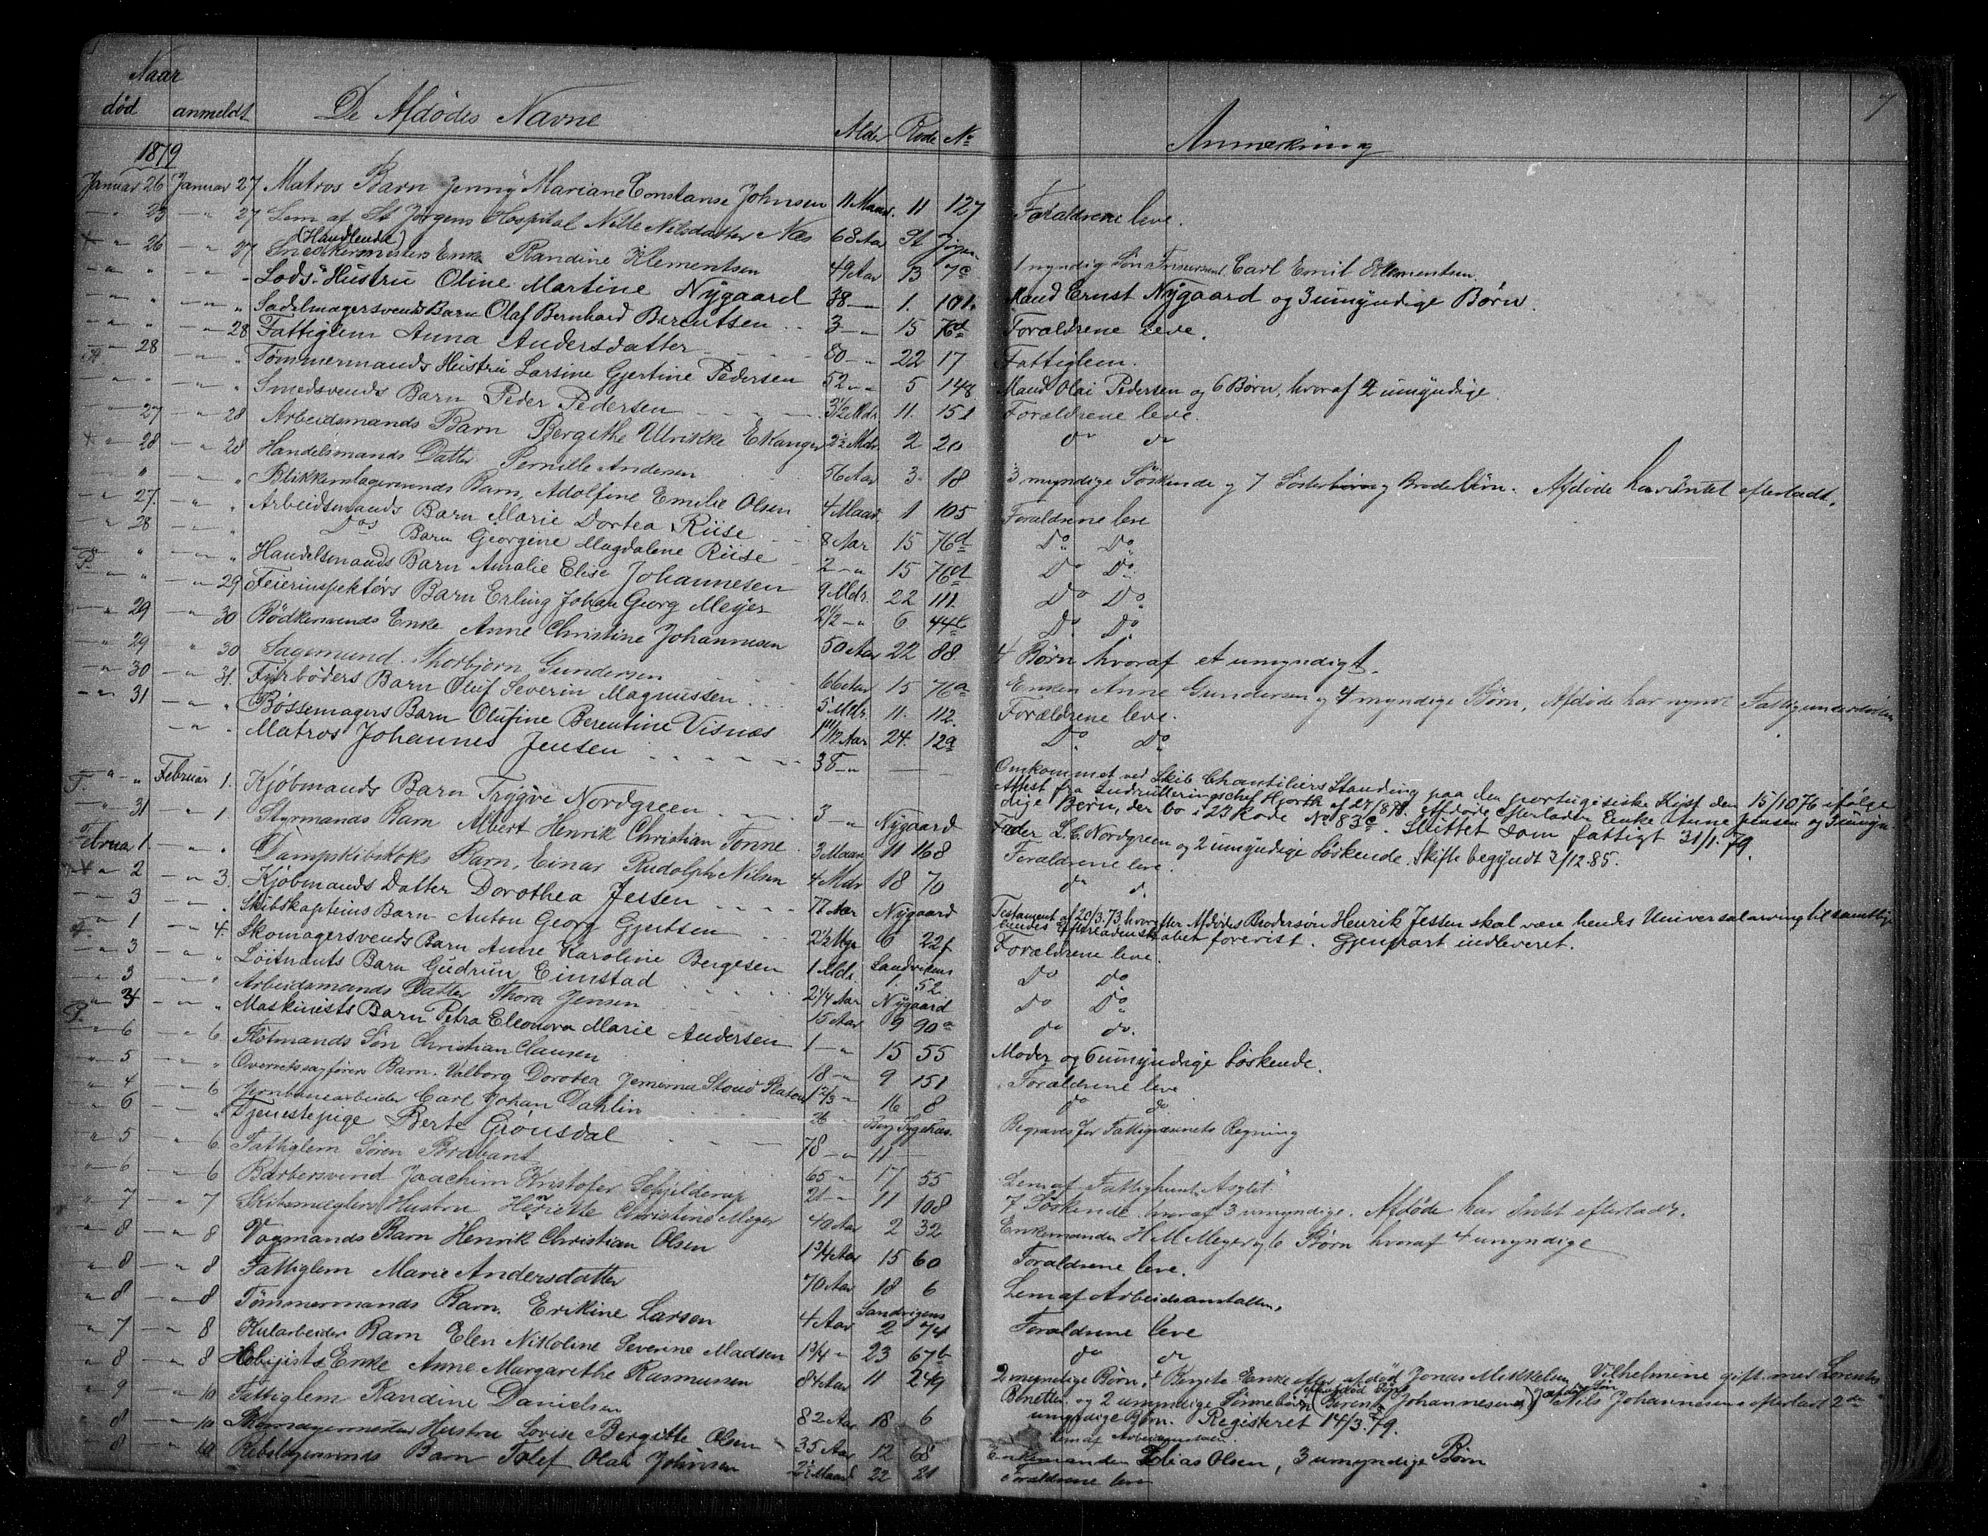 Naar
død anmeldt De Afdødes Navne Alder Rode No Anmærkning 7
1879
Januar 26 Januar 27 Matros Barn Jenny Mariane Constanse Johnsen 11 Maad. 11 127 Forældrene leve.
" 23 " 27 Lem af St Jørgens Hospital Nille Nilsdatter Næs 68 Aar St Jørgen
(Handlende)
" 26 " 27 Snedkermesters Enke Randine Klementsen 49 Aar 13 7c 1 myndig Søn Carl Emil Klementsen
" " Lods Hustru Oline Martine Nygaard 38 " 1. 101. Mand Ernst Nygaard og 3 umyndige Børn.
" " Sadelmagersvends Barn Olaf Bernhard Berentsen 3 " 15 76d Forældrene leve.
" " 28 Fattiglem Anna Andersdatter 80 " 22 17 Fattiglem.
" 28 " Tømmermands Hustru Larsine Gjertine Pedersen 52 " 5 148 Mand Olai Pedersen og 6 Børn, hvoraf 2 umyndige.
" " Smedsvends Barn Peder Pedersen 3½ Mdr. 11. 151 Forældrene leve.
" 27 " 28 Arbeidsmands Barn Bergithe Ulrikke Ekanger 2½ Mdr. 2 20 do do
" 28 " 28 Handelsmands Datter Pernille Andersen 56 Aar 3 18 3 myndige Søskende og 7 Søsterbørn og Broderbørn. Afdøde har Intet efterladt.
" " Blikkenslagersvends Barn, Adolfine Emilie Olsen 4 Maad. 1 105 Forældrene leve
" 27. " Arbeidsmands Barn Marie Dortea Riise 8 Aar 15 76d Do Do
" 28 " Dos Barn Georgine Magdalene Riise 2 " 15 76d Do Do.
" " Handelsmands Barn Amalie Elise Johannesen 9 Mdr. 22 111. Do Do
" " 29 Feierinspektørs Barn Erling Johan Georg Meyer 2½ " 6 44c Do Do.
" 29 " 30 Bødkersvends Enke Anne Christine Johannesen 50 Aar 22 88 4 Børn hvoraf et umyndigt.
" 29 " 30 Sagemund. Thorbjørn Gundersen 66 Aar 15 76a Enken Anne Gundersen og 4 myndige Børn, Afdøde har nydt Fattigunderstøttelse
" 30 " 31. Fyrbøders Barn Oluf Severin Magnussen 5 Mdr. 11. 112. Forældrene leve.
" 31 " Bøssemagers Barn Olufine Berentine Visnæs 1 11/12 Aar 24. 12a Do Do
" " Matros Johannes Jensen 38 " Omkommet ved Skib Chantiliers Stranding paa den portugisiske Kyst den 15/10 76 ifølge
Attest fra Indrulleringschef Hjorth af 27/8 78. Afdøde efterlader Enke Anne Jensen og 3 umyn
dige Børn, der bo i 23 Rode No 83c. Sluttet som fattigt 31/1. 79.
" " Februar 1. Kjøbmands Barn Trygve Nordgreen 3 " Nygaard Fader L. C. Nordgreen og 2 umyndige Søskende. Skifte begyndt 3/12. 85.
" 31 " 1 Styrmands Barn Albert Henrik Christian Tønne 3 Maad. 11 168 Forældrene leve.
Februar 1 " Dampskibskoks Barn, Einar Rudolph Nilsen 4 Mdr 18 70 do d.
" 2 " 3. Kjøbmands Datter Dorothea Jessen 77 Aar Nygaard Testament af 20/3. 73 hvorefter Afdødes Brodersøn Henrik Jessen skal være hendes Universalarving til samtlige
hendes Efterladenskaber forevist. Gjenpart indleveret.
" 3 " Skibskapteins Barn Anton Georg Gjertsen 2½ Mdr 6 22f Forældrene leve.
" 1 " 4. Skomagersvends Barn Anne Karoline Bergesen 1 Mdr. Sandvikens 1. 52 Do Do
" 3 " Løitnants Barn Gudrun Eimstad 2¼ Aar Nygaard Do Do
" 3 " Arbeidsmands Datter Thora Jensen 15 Aar 9 90a do do.
" 4 " Maskinists Barn Petra Eleonora Marie Andersen 1 " 15 55
" 6 " 6 Flotmands Søn Christian Clausen 18 " 9 151 Moder og 6 umyndige Søskende.
" 5 " Overretssagførers Barn. Valborg Dorotea 1 2/3 " 16 8 Forældrene leve
" 4 " 6 Jernbanearbeider Carl Johan Dahlin 26 Byg Sygehus. do do.
" 6 " Tjenestepige Berte Grønsdal 78 " 11 Begraves for Fattigvæsenets Regning
" 5 " 6 Fattiglem Søren Brabant 65 " 17 55 Lem af Fattighusets Asylet
" 6 " 6 Barbersvend Joachim Kristofer Schjelderup 21 " 11 108 7 Søskende, hvoraf 3 umyndige. Afdøde har Intet efterladt.
" 7 " 7 Skibsmæglers Hustru Henriette Christine Meyer 40 Aar 2 32 Enkemanden H. M. Meyer og 6 Børn hvoraf 4 umyndige
" 8 " 8 Vognmands Barn Henrik Christian Olsen 1¾ Aar 15 60 Forældrene leve.
" 8 " 8 Fattiglem Marie Andersdatter 70 Aar 18 6 Lem af Arbeidsanstalten.
" 8 " 8 Tømmermands Barn Erikine Larsen 4 Aar Sandvigens 2 74 Forældrene leve
" 7 " 8 Kularbeider Barn Elen Nikoline Severine Madsen 1¾ " 23 67b do do
" 8 " 8 Enke Anne Margarethe Rasmussen 84 Aar 11 249 2 myndige Børn, Bergite Enke efter afdød Jonas Mikkelsen Vilhelmine gift med Lorents
Benetter, og 2 umyndige Sønnebørn Johannesen Nils Johannesen efterladt 2de
umyndige Børn. Registreret 14/3. 79.
" 9 " 10 Fattiglem Randine Danielsen 82 Aar 18 6 Lem af Arbeidsanstalten.
" 8 " 10 Skomagermester Hustru Lovise Bergitte Olsen 35 Aar 12 68 Enkemanden Tobias Olsen, 3 umyndige Børn
" 8 " 10 Rebslagersvends Barn Tolef Olai Johnsen 2½ Maad 22 21 Forældrene leve